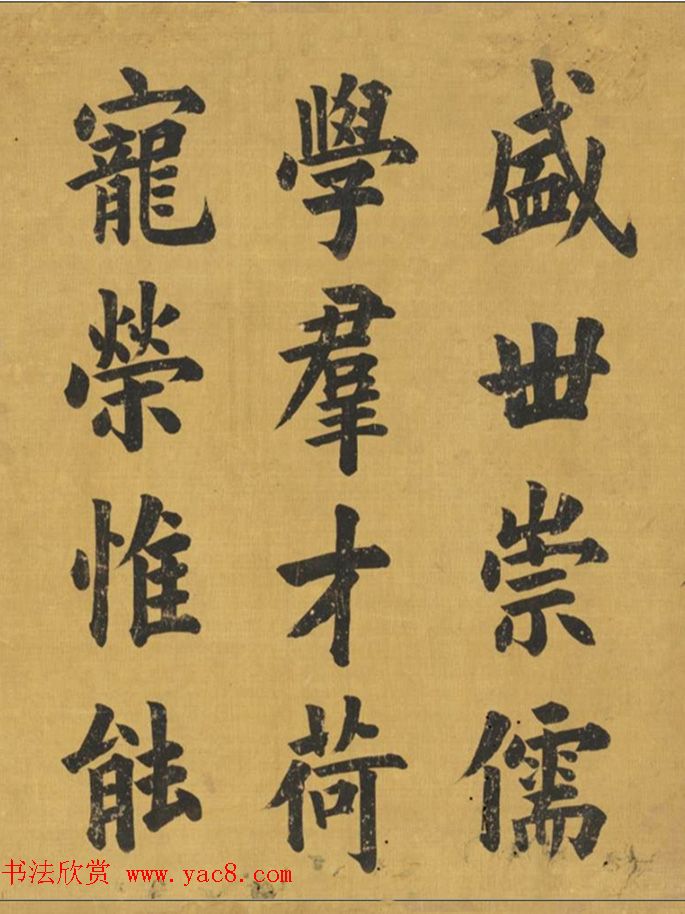 盛世崇儒
學羣才荷
寵榮惟能
书法欣赏 www.yac8.com